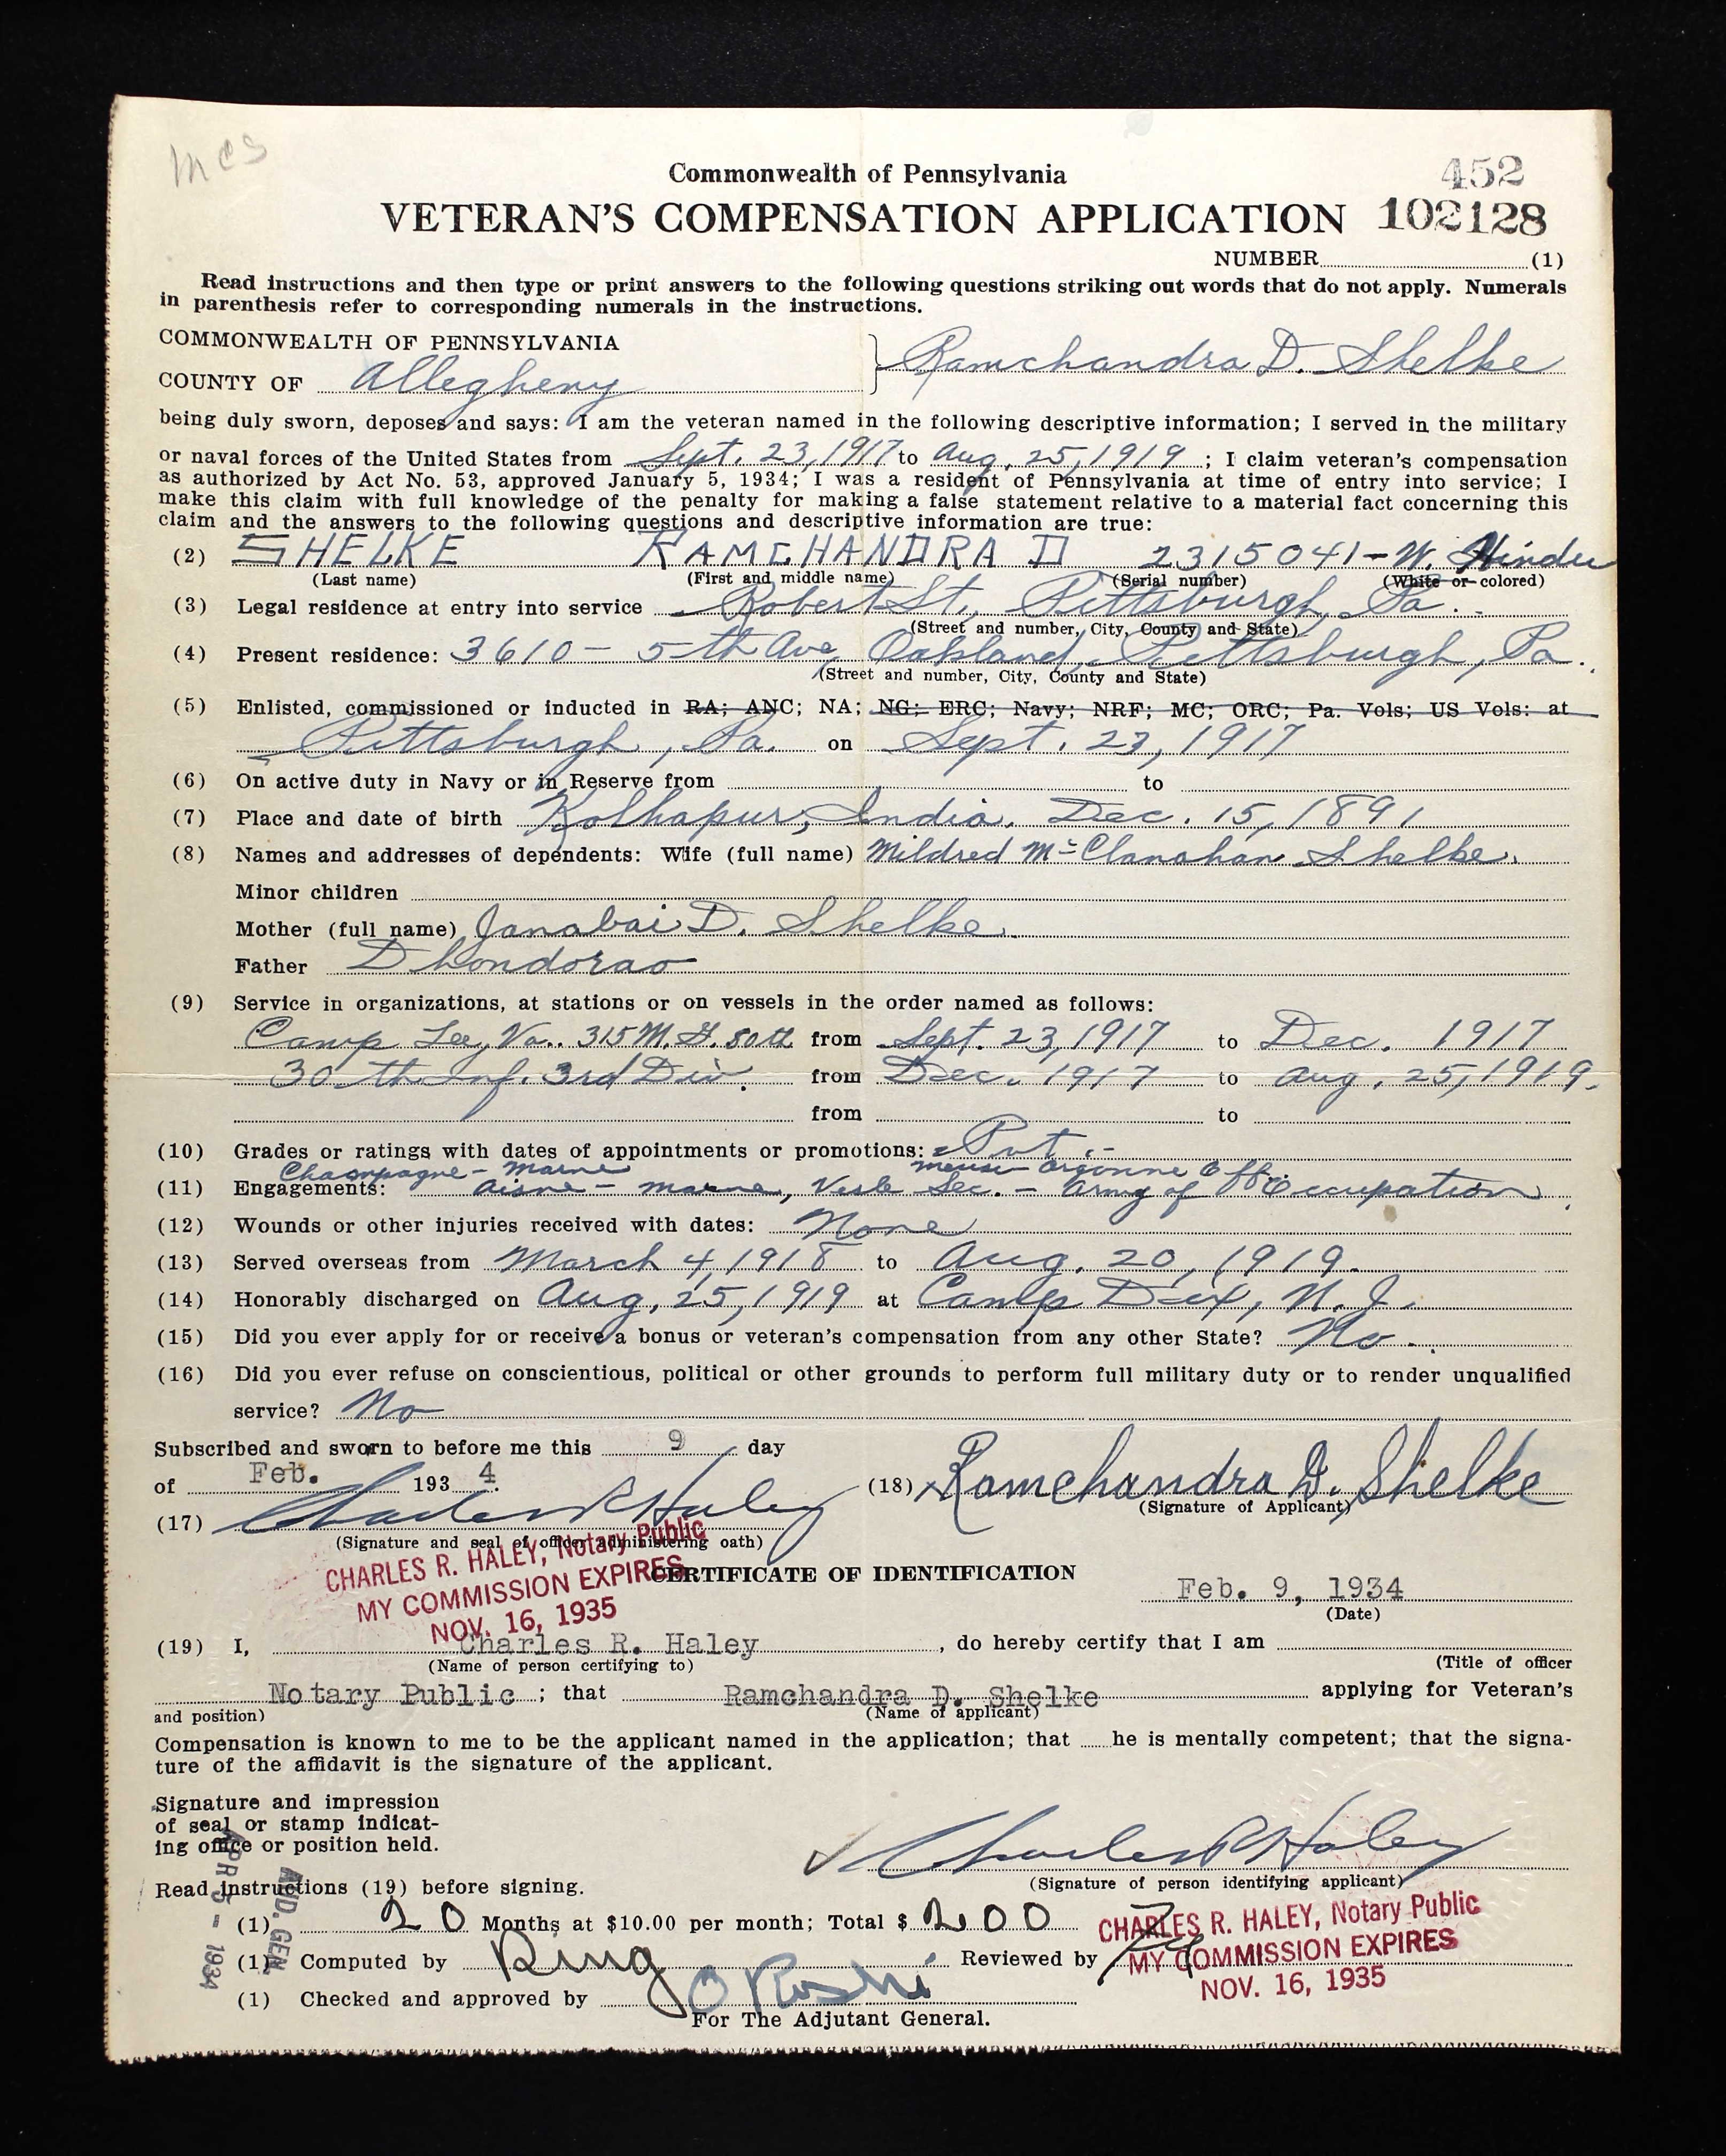 mcs
Commonwealth of Pennsylvania
452
VETERAN'S COMPENSATION APPLICATION 102128
NUMBER (1)
Read instructions and then type or print answers to the following questions striking out words that do not apply. Numerals
in parenthesis refer to corresponding numerals in the instructions.
COMMONWEALTH OF PENNSYLVANIA
COUNTY OF Allegheny } Ramchandra D. Shelke
being duly sworn, deposes and says: I am the veteran named in the following descriptive information; I served in the military
or naval forces of the United States from Sept. 23, 1917 to Aug. 25, 1919; I claim veteran's compensation
as authorized by Act No. 53, approved January 5, 1934; I was a resident of Pennsylvania at time of entry into service; I
make this claim with full knowledge of the penalty for making a false statement relative to a material fact concerning this
claim and the answers to the following questions and descriptive information are true:
(2) SHELKE RAMCHANDRA D 2315041-W. Hindu
(Last name) (First and middle name) (Serial number) (White or colored)
(3) Legal residence at entry into service Robert St., Pittsburgh, Pa.
(Street and number, City, County and State)
(4) Present residence: 3610 - 5th Ave, Oakland, Pittsburgh, Pa.
(Street and number, City, County and State)
(5) Enlisted, commissioned or inducted in RA; ANC; NA; NG; ERC; Navy; NRF; MC; ORC; Pa. Vols; US Vols: at
Pittsburgh, Pa. on Sept. 23, 1917
(6) On active duty in Navy or in Reserve from to
(7) Place and date of birth Kolhapur, India. Dec. 15, 1891
(8) Names and addresses of dependents: Wife (full name) Mildred McClanahan Shelke.
Minor children
Mother (full name) Janabai D. Shelke.
Father Dhondorao
(9) Service in organizations, at stations or on vessels in the order named as follows:
Camp Lee, Va.. 315 M. G. 80th from Sept. 23, 1917 to Dec. 1917
30th Inf. 3rd Div. from Dec. 1917 to Aug. 25, 1919.
from to
(10) Grades or ratings with dates of appointments or promotions: Pvt.-
Champagne - Marne Meuse - Argonne Off.
(11) Engagements: Aisne - Marne, Vesle Sec. - Army of Occupation
(12) Wounds or other injuries received with dates: None
(13) Served overseas from March 4, 1918 to Aug. 20, 1919.
(14) Honorably discharged on Aug. 25, 1919 at Camp Dix, N. J.
(15) Did you ever apply for or receive a bonus or veteran's compensation from any other State? No.
(16) Did you ever refuse on conscientious, political or other grounds to perform full military duty or to render unqualified
service? No
Subscribed and sworn to before me this 9 day
of Feb. 193 4.
(18) Ramchandra D. Shelke
(Signature of Applicant)
(17) Charles R Haley
(Signature and seal of officer administering oath)
CHARLES R. HALEY, Notary Public
MY COMMISSION EXPIRES
NOV. 16, 1935
CERTIFICATE OF IDENTIFICATION
Feb. 9, 1934
(Date)
(19) I, Charles R. Haley, do hereby certify that I am
(Name of person certifying to) (Title of officer
Notary Public; that Ramchandra D. Shelke applying for Veteran's
and position) (Name of applicant)
Compensation is known to me to be the applicant named in the application; that he is mentally competent; that the signa-
ture of the affidavit is the signature of the applicant.
Signature and impression
of seal or stamp indicat-
ing office or position held.
Charles R Haley
(Signature of person identifying applicant)
Read instructions (19) before signing.
APR 5 - 1934
AUD. GEN.
CHARLES R. HALEY, Notary Public
MY COMMISSION EXPIRES
NOV. 16, 1935
(1) 20 Months at $10.00 per month; Total $ 200
(1) Computed by Ring Reviewed by
(1) Checked and approved by
For The Adjutant General.